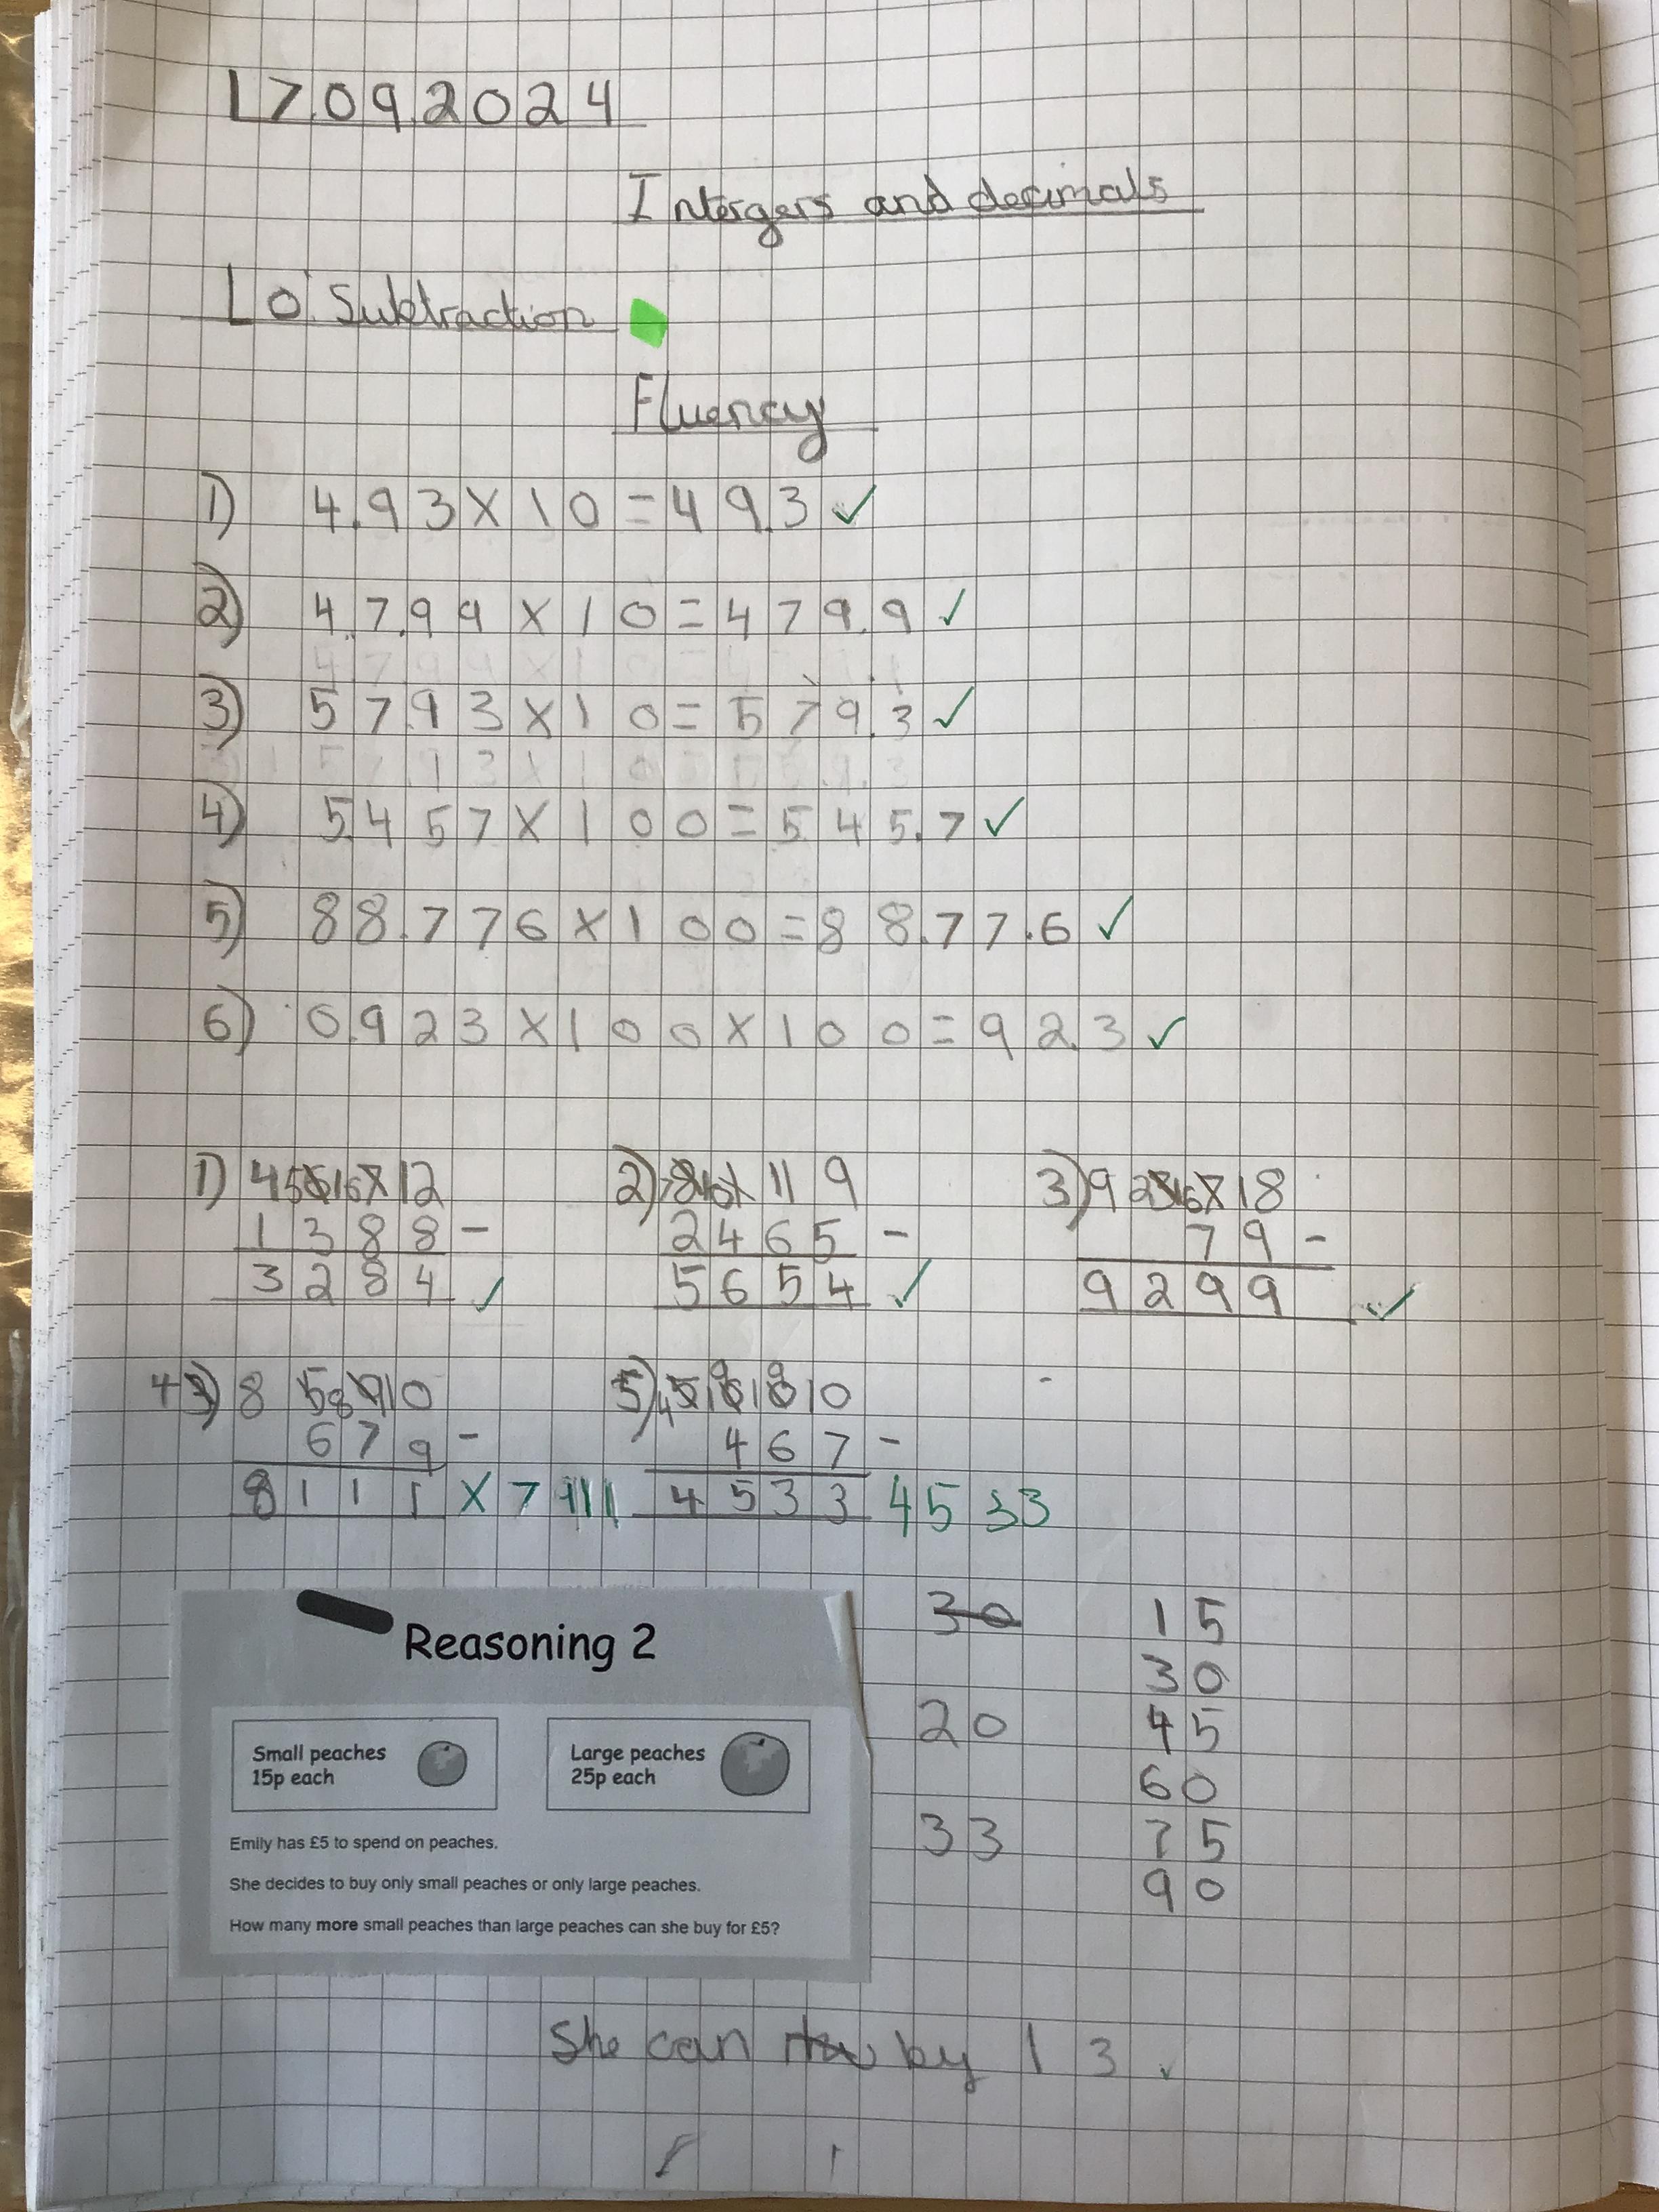 17.09.2024
Intergers and decimals
LO: Subtraction
Fluency
1) 4.93 X 10 = 49.3 ✓
2) 47.99 X 10 = 479.9 ✓
3) 57.93 X 10 = 579.3 ✓
4) 5.457 X 100 = 545.7 ✓
5) 88.776 X 100 = 88.77.6 ✓
6) 0.923 X 100 X 100 = 92.3 ✓
1) 2) 3)
1388 - 2465 - 79 -
3284 ✓ 5654 ✓ 9299 ✓
4) 5)
679 - 467 -
8111 X 7111 4533 4533
30 15
Reasoning 2
30
20 45
Small peaches
15p each
Large peaches
25p each
60
33 75
90
Emily has £5 to spend on peaches.
She decides to buy only small peaches or only large peaches.
How many more small peaches than large peaches can she buy for £5?
She can by 13 ✓